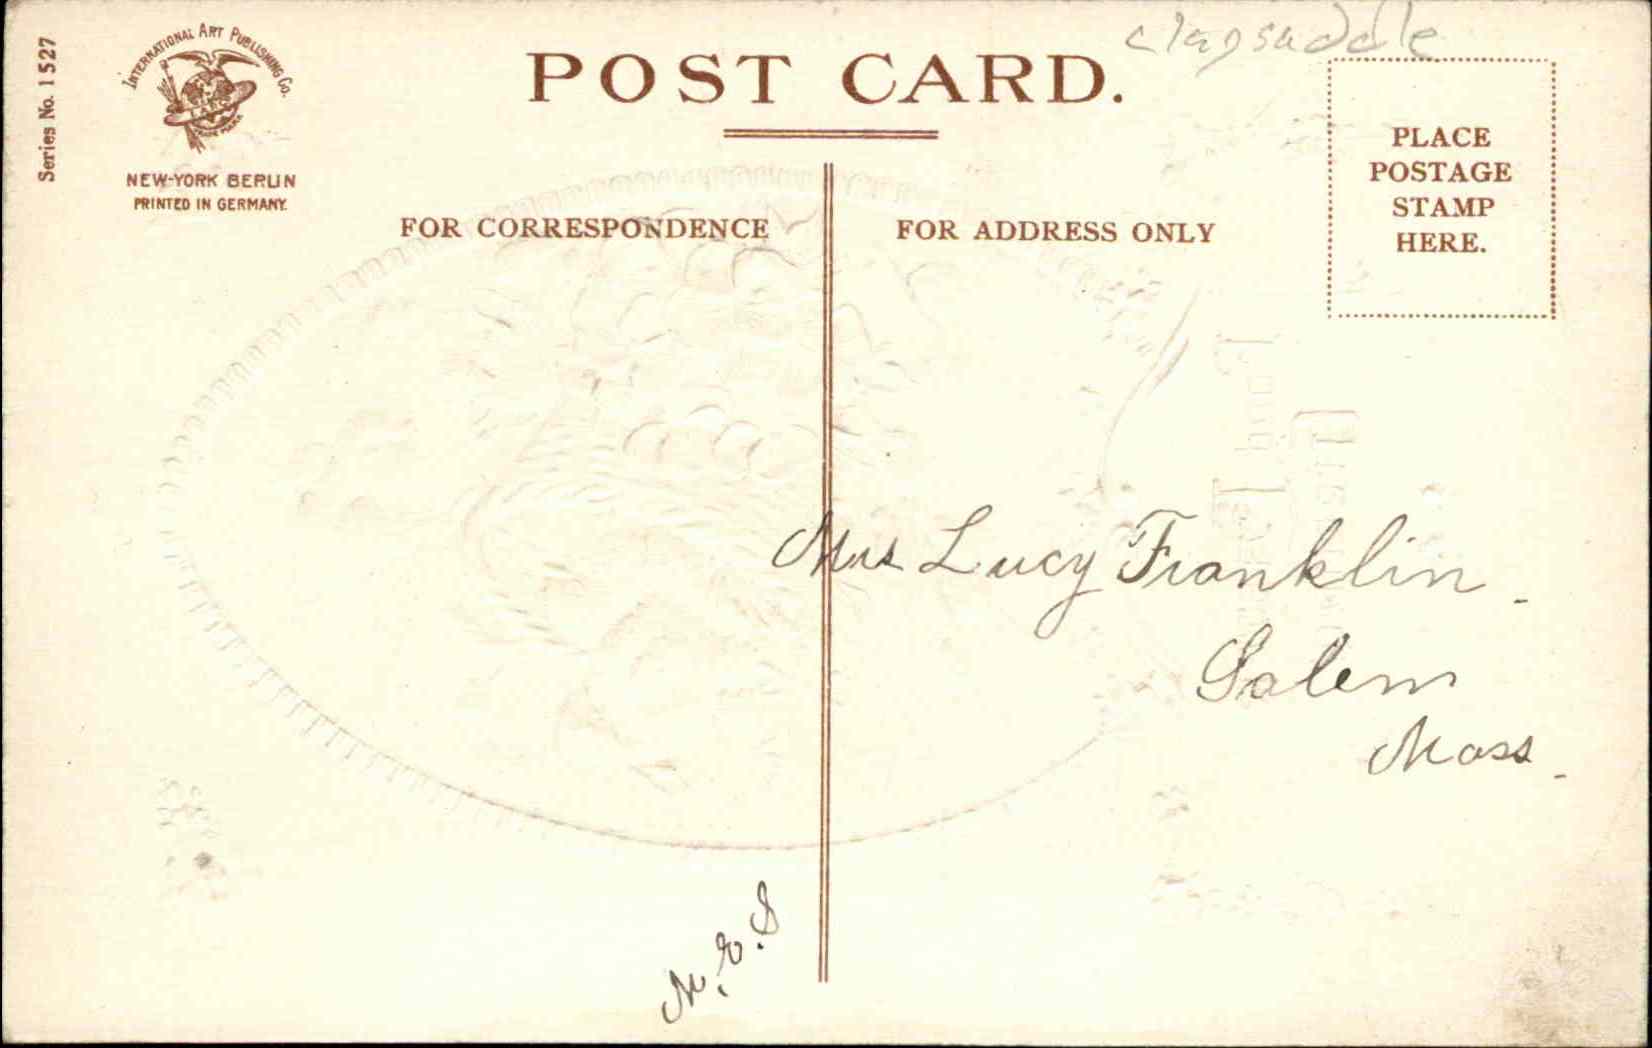 Series No. 1527
INTERNATIONAL ART PUBLISHING Co.
NEW-YORK BERLIN
PRINTED IN GERMANY.
POST CARD.
clapsaddle
PLACE
POSTAGE
STAMP
HERE.
FOR CORRESPONDENCE
FOR ADDRESS ONLY
Mrs Lucy Franklin.
Salem
Mass.
M.E.S